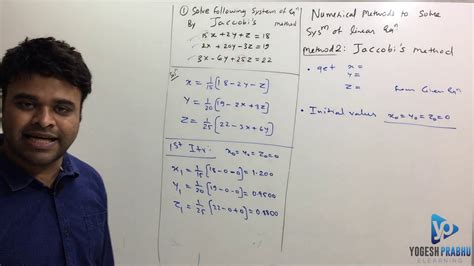 ① Solve following System of Eqn
By Jaccobi's method
15x + 2y + z = 18
2x + 20y - 3z = 19
3x - 6y + 25z = 22
x = 1/15 [18 - 2y - z]
y = 1/20 [19 - 2x + 3z]
z = 1/25 [22 - 3x + 6y]
1st Itr: x₀ = y₀ = z₀ = 0
x₁ = 1/15 [18 - 0 - 0] = 1.200
y₁ = 1/20 [19 - 0 - 0] = 0.9500
z₁ = 1/25 [22 - 0 + 0] = 0.8800
Numerical Methods to Solve
Sysm of linear Eqn
method 2: Jaccobi's method
• get x =
y =
z = from Given Eqn
• Initial values x₀ = y₀ = z₀ = 0
yp
YOGESH PRABHU
ELEARNING